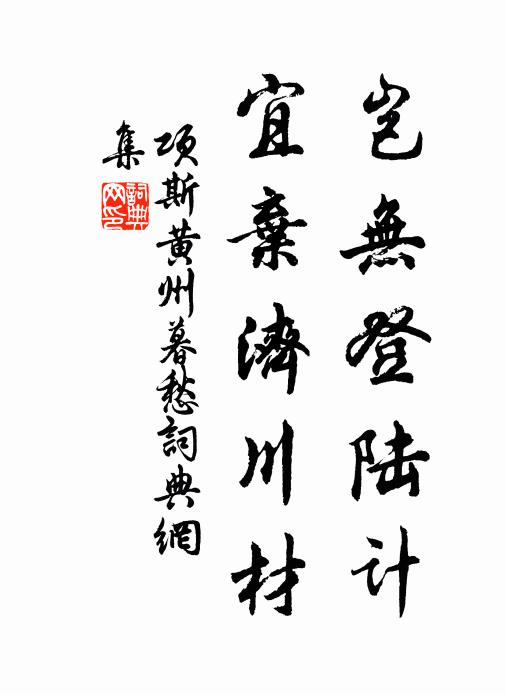 岂無登陆计
宜棄濟川材
项斯黄州暮愁詞典網
集
詞典
网印